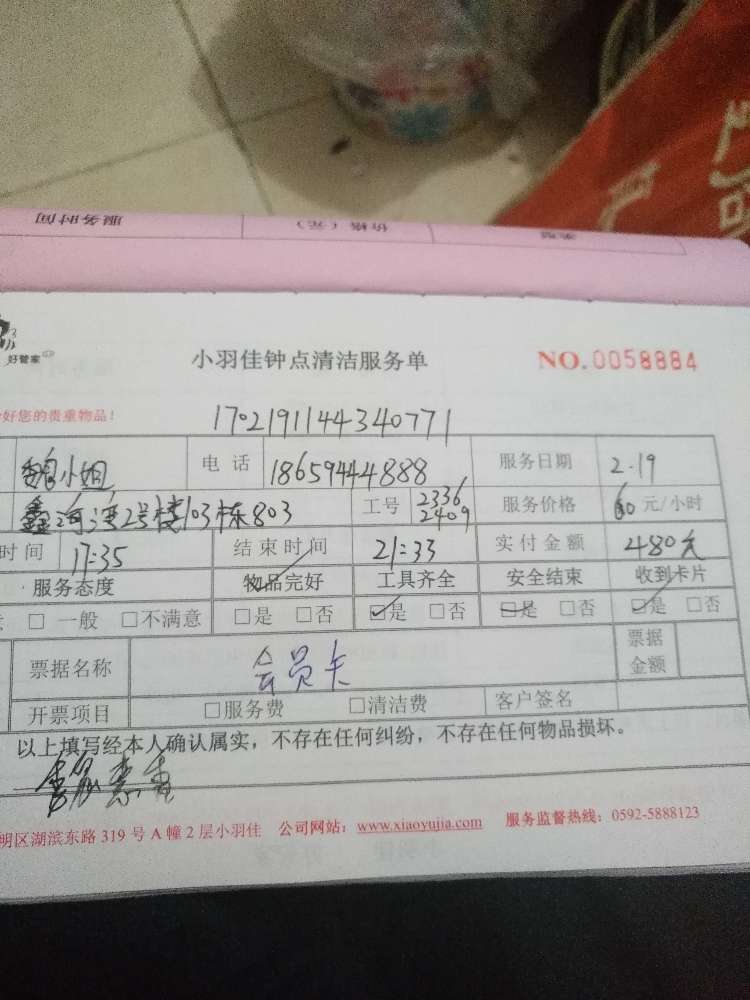 服务时间 价格（元） 类型
好管家
小羽佳钟点清洁服务单 NO.0058884
好您的贵重物品! 1702191144340771
魏小姐 电话 18659444888 服务日期 2-19
鑫海湾2号楼103栋803 工号 2336 2409 服务价格 60元/小时
时间 17:35 结束时间 21:33 实付金额 480元
服务态度 物品完好 工具齐全 安全结束 收到卡片
□一般 □不满意 □是 □否 ☑是 □否 □是 □否 ☑是 □否
票据名称 会员卡 票据金额
开票项目 □服务费 □清洁费 客户签名
以上填写经本人确认属实，不存在任何纠纷，不存在任何物品损坏。
明区湖滨东路319号A幢2层小羽佳 公司网站：www.xiaoyujia.com 服务监督热线：0592-5888123